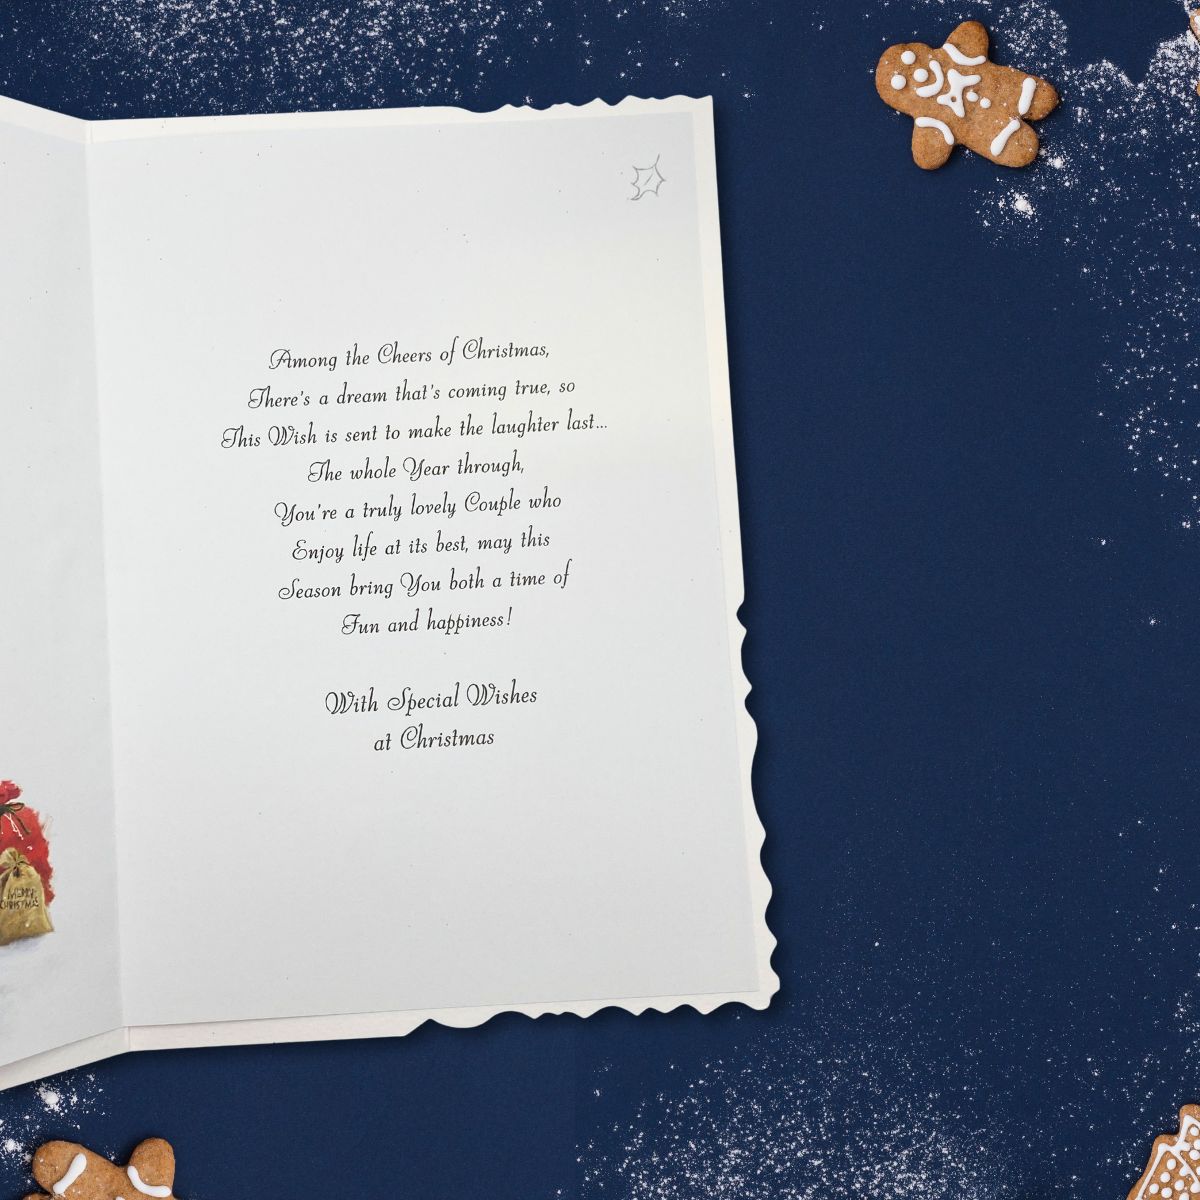 Among the Cheers of Christmas,
There's a dream that's coming true, so
This Wish is sent to make the laughter last...
The whole Year through,
You're a truly lovely Couple who
Enjoy life at its best, may this
Season bring You both a time of
Fun and happiness!
With Special Wishes
at Christmas
MERRY
CHRISTMAS